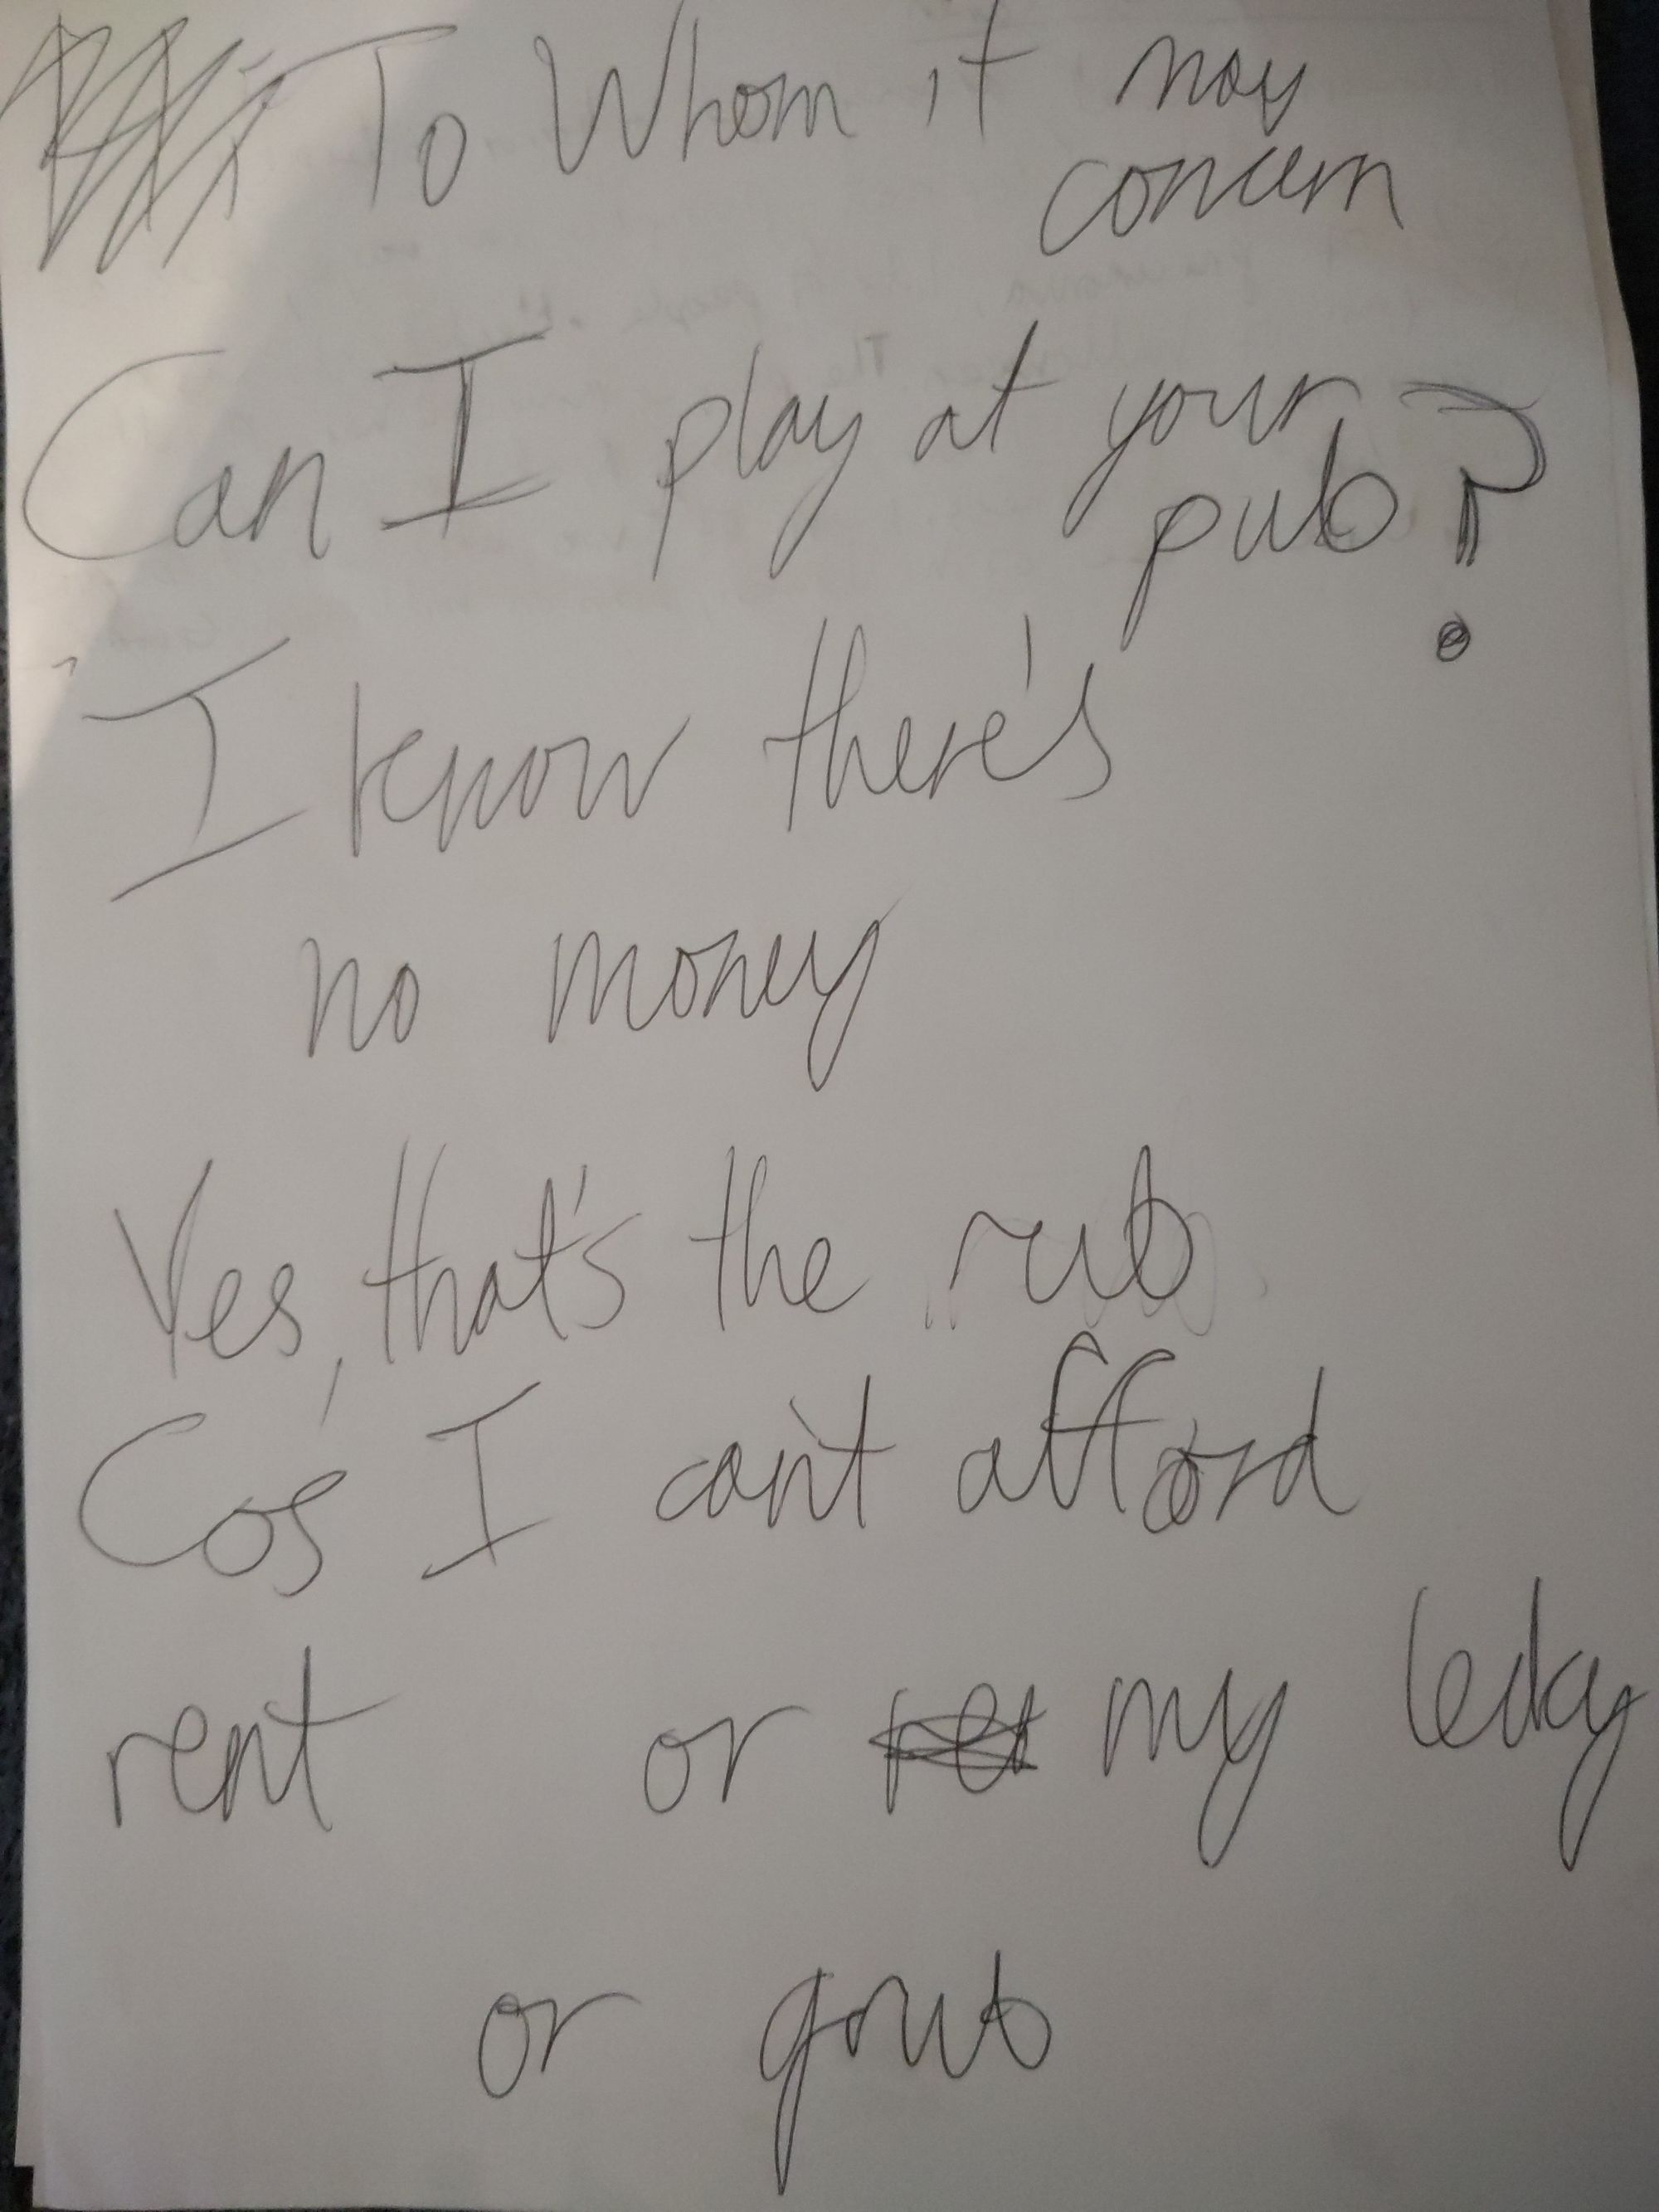 To Whom it may
concern
Can I play at your
pub?
I know there's
no money
Yes, that's the rub
Cos I can't afford
rent or my lecky
or grub